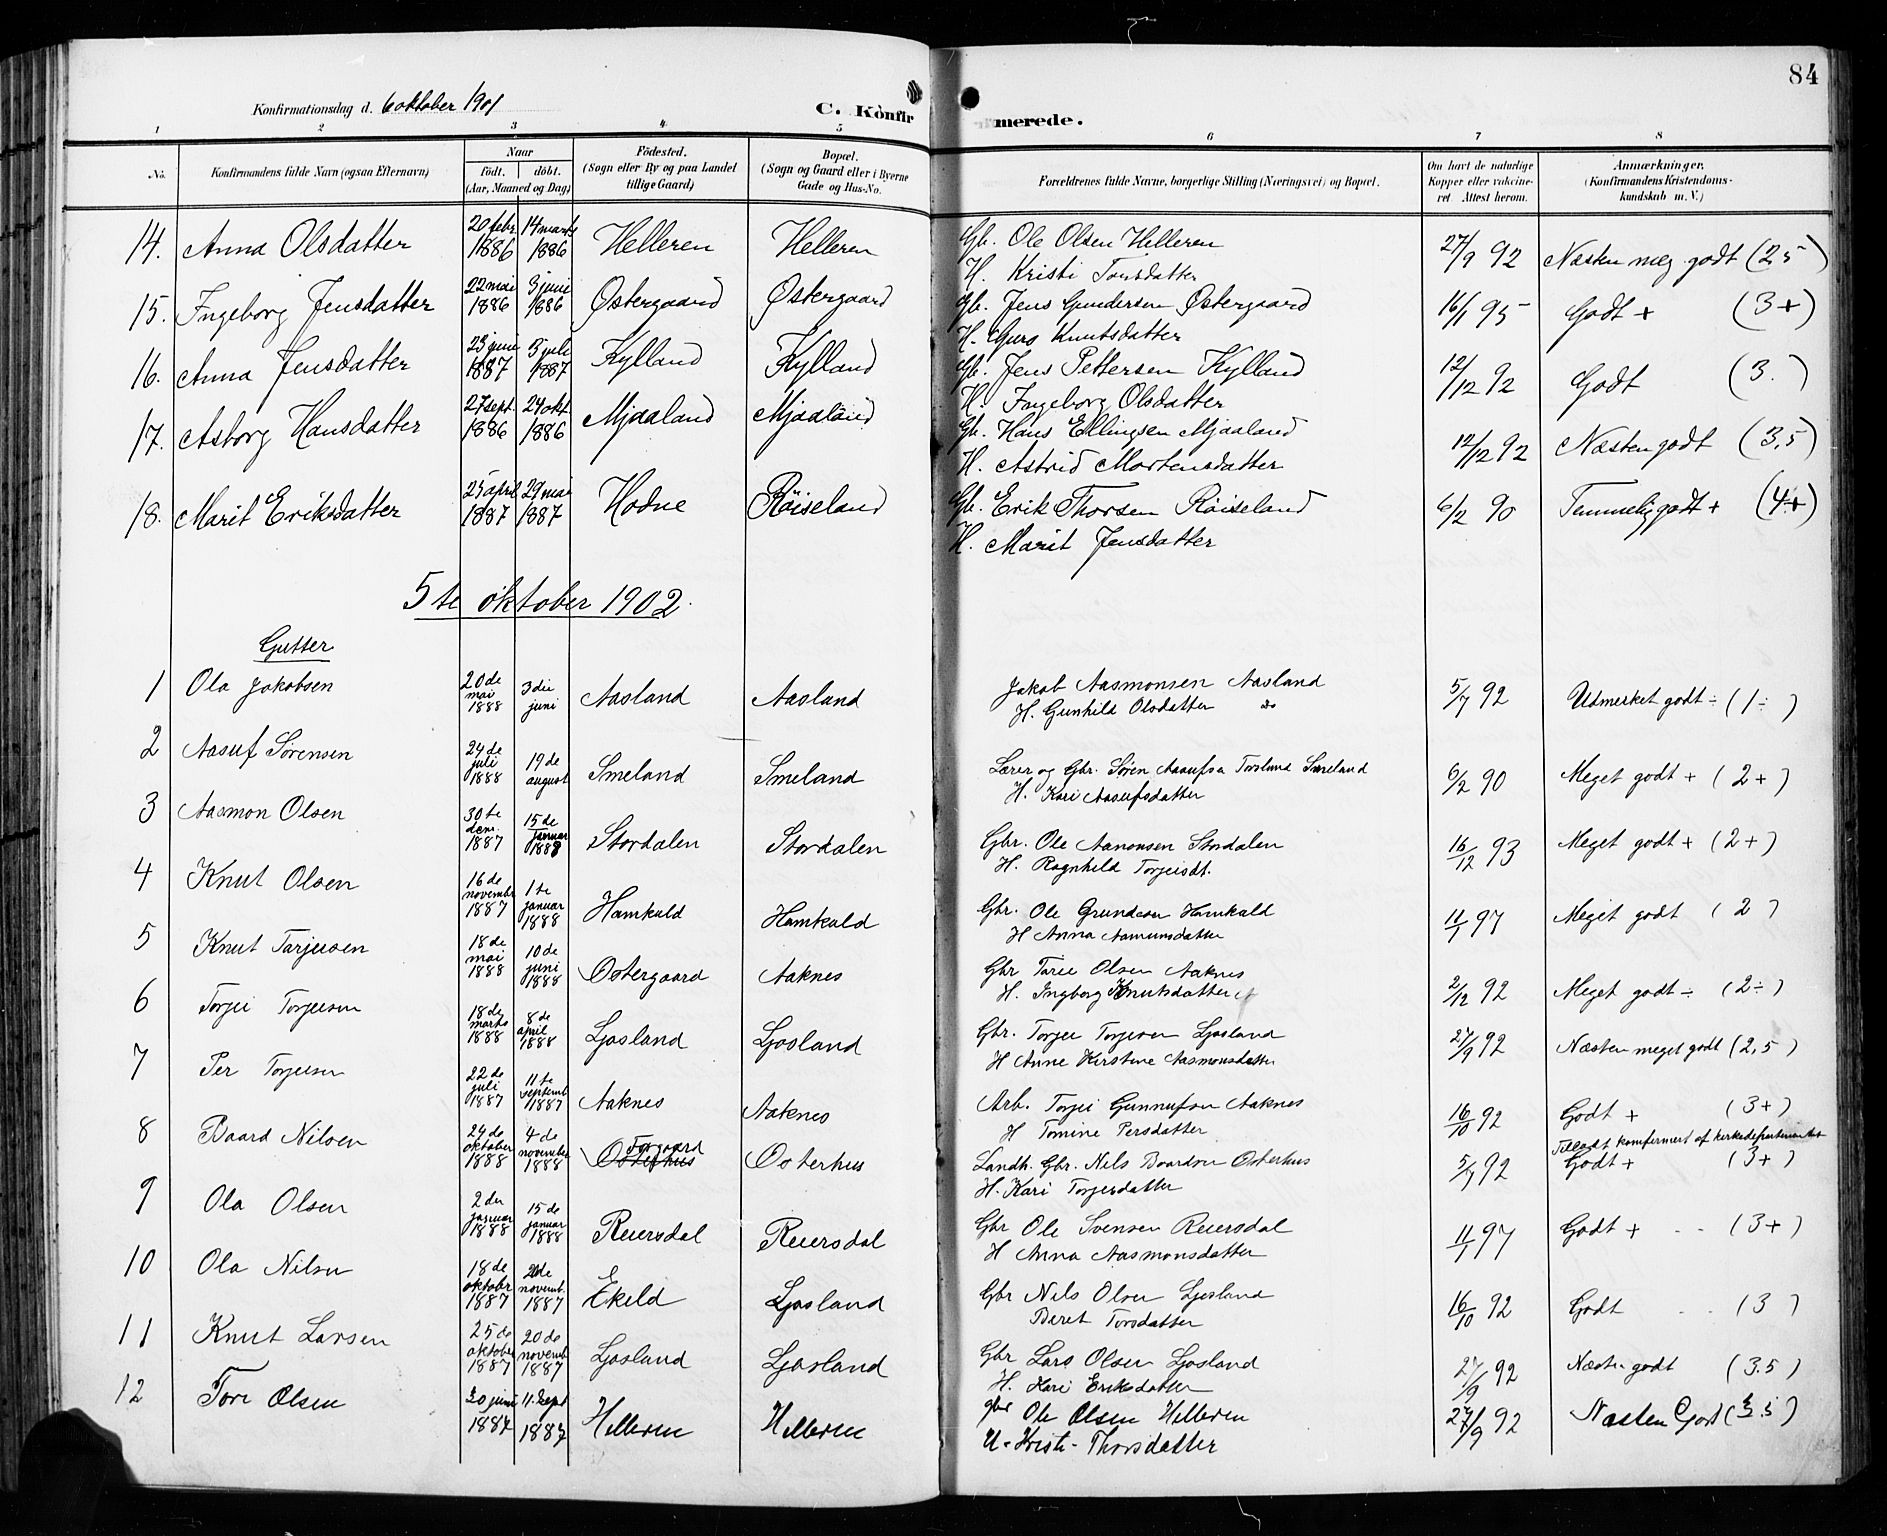 84
Konfirmationsdag d. 6 oktober 1901
C. Konfirmerede.
1 2 3 4 5 6 7 8
No. Konfirmandens fulde Navn (ogsaa Efternavn) Naar født. døbt. (Aar, Maaned og Dag) Fødested. (Sogn eller By og paa Landet tillige Gaard) Bopæl. (Sogn og Gaard eller i Byerne Gade og Hus-No. Forældrenes fulde Navne, borgerlige Stilling (Næringsvei) og Bopæl. Om havt de naturlige Kopper eller vakcineret. Attest herom. Anmærkninger. (Konfirmandens Kristendomskundskab m. V.)
14. Anna Olsdatter 20 febr 1886 14 marts 1886 Helleren Helleren Gb. Ole Olsen Helleren 27/9 92 Næsten meg. godt (2 5)
H. Kristi Torisdatter
15. Ingeborg Jensdatter 22 mai 1886 3 juni 1886 Østergaard Østergaard Gb. Jens Gundersen Østergaard 16/1 95 Godt + (3+)
H. Guro Knutsdatter
16. Anna Jensdatter 23 juni 1887 3 juli 1887 Kylland Kylland Gb. Jens Pettersen Kylland 12/12 92 Godt (3. )
H. Ingeborg Olsdatter
17. Asborg Hansdatter 27 sept. 1886 24 okt. 1886 Mjaaland Mjaaland Gb. Hans Ellingsen Mjaaland 12/12 92 Næsten godt (3,5)
H. Astrid Mortensdatter
18. Marit Eriksdatter 25 april 1887 29 mai 1887 Hodne Røiseland Gb. Erik Thorsen Røiseland 6/2 90 Temmelig godt + (4+)
H. Marit Jensdatter
5te oktober 1902.
Gutter
1 Ola Jakobsen 20de mai 1888 3die juni Aasland Aasland Jakob Aasmonsen Aasland 5/7 92 Udmerket godt ÷ (1÷ )
H. Gunhild Olsdatter do
2 Aasuf Sørensen 24de juli 1888 19de august Smeland Smeland Lærer og Gbr. Søren Aasufsen Smeland 6/2 90 Meget godt + (2+)
H. Kari Aasufsdatter
3 Aasmon Olsen 30te dcm. 1887 15de januar 1888 Stordalen Stordalen Gbr. Ole Aanonsen Stordalen 16/12 93 Meget godt + (2+)
H. Ragnhild Torjeisdt.
4 Knut Olsen 16de novembr 1887 1te januar 1888 Hamkald Hamkald Gbr. Ole Hamkald 11/1 97 Meget godt (2 )
H Anna Aamunsdatter
5 Knut Tarjeisen 18de mai 1888 10de juni 1888 Ostergaard Aaknes Gbr Olsen Aaknes 2/12 92 Meget godt ÷ (2÷)
H. Ingborg Knutsdatter
6 Torjei Torjeisen 18de marts 1888 8de april 1888 Ljosland Ljosland Gbr. Torjei Torjeisen Ljosland 27/9 92 Næsten meget godt (2,5)
H Anne Kirstine Aasmonsdatter
7 Per Torjeisen 22de juli 1887 11te septemb 1887 Aaknes Aaknes Arb. Torjei Gunnufsen Aaknes 16/10 92 Godt + (3+)
H Tomine Persdatter
8 Baard Nilsen 24de oktober 1888 4de november 1888 Osterhus Osterhus Landh. Gbr. Nils Baardsen Osterhus 5/7 92 Tilladt komfermert af kirkedepartementet Godt + (3+ )
H. Kari Torjeisdatter
9 Ola Olsen 2den januar 1888 15de januar 1888 Reiersdal Reiersdal Gbr Ole Svensen Reiersdal 11/1 97 Godt + - - (3+)
H Anna Aasmonsdatter
10 Ola Nilsen 18de oktobr 1887 novemb. 1887 Ekeld Ljosland Gbr Nils Olsen Ljosland 16/10 92 Godt - - (3 )
Beret Torsdatter
11 Knut Larsen 25de oktober 1887 20de novemb 1887 Ljosland Ljosland Gbr Lars Olsen Ljosland 27/9 92 Næsten godt (3.5)
H. Kari Eriksdatter
12 Tore Olsen 30 juni 1887 11. Sept 1887 Helleren Helleren gbr Ole Olsen Helleren 27/9 92 Næsten Godt (3.5)
U. Kristi Thorsdatter